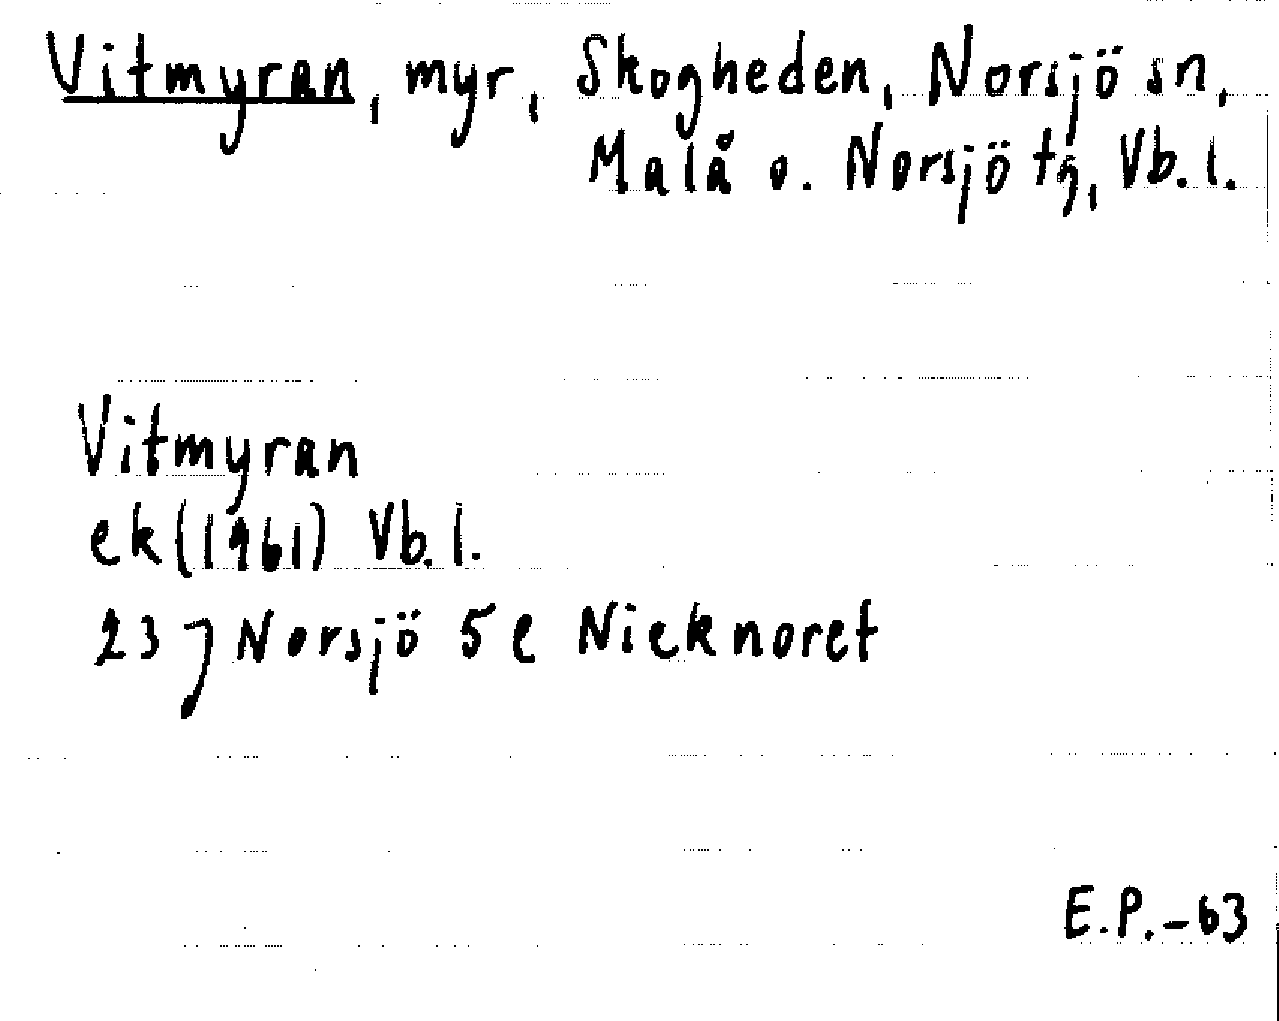 Vitmyran, myr, Skogheden, Norsjö sn,
Malå o. Norsjö tg, Vb. l.
Vitmyran
ek (1961) Vb. l.
23 J Norsjö 5 e Nicknoret
E.P. -63